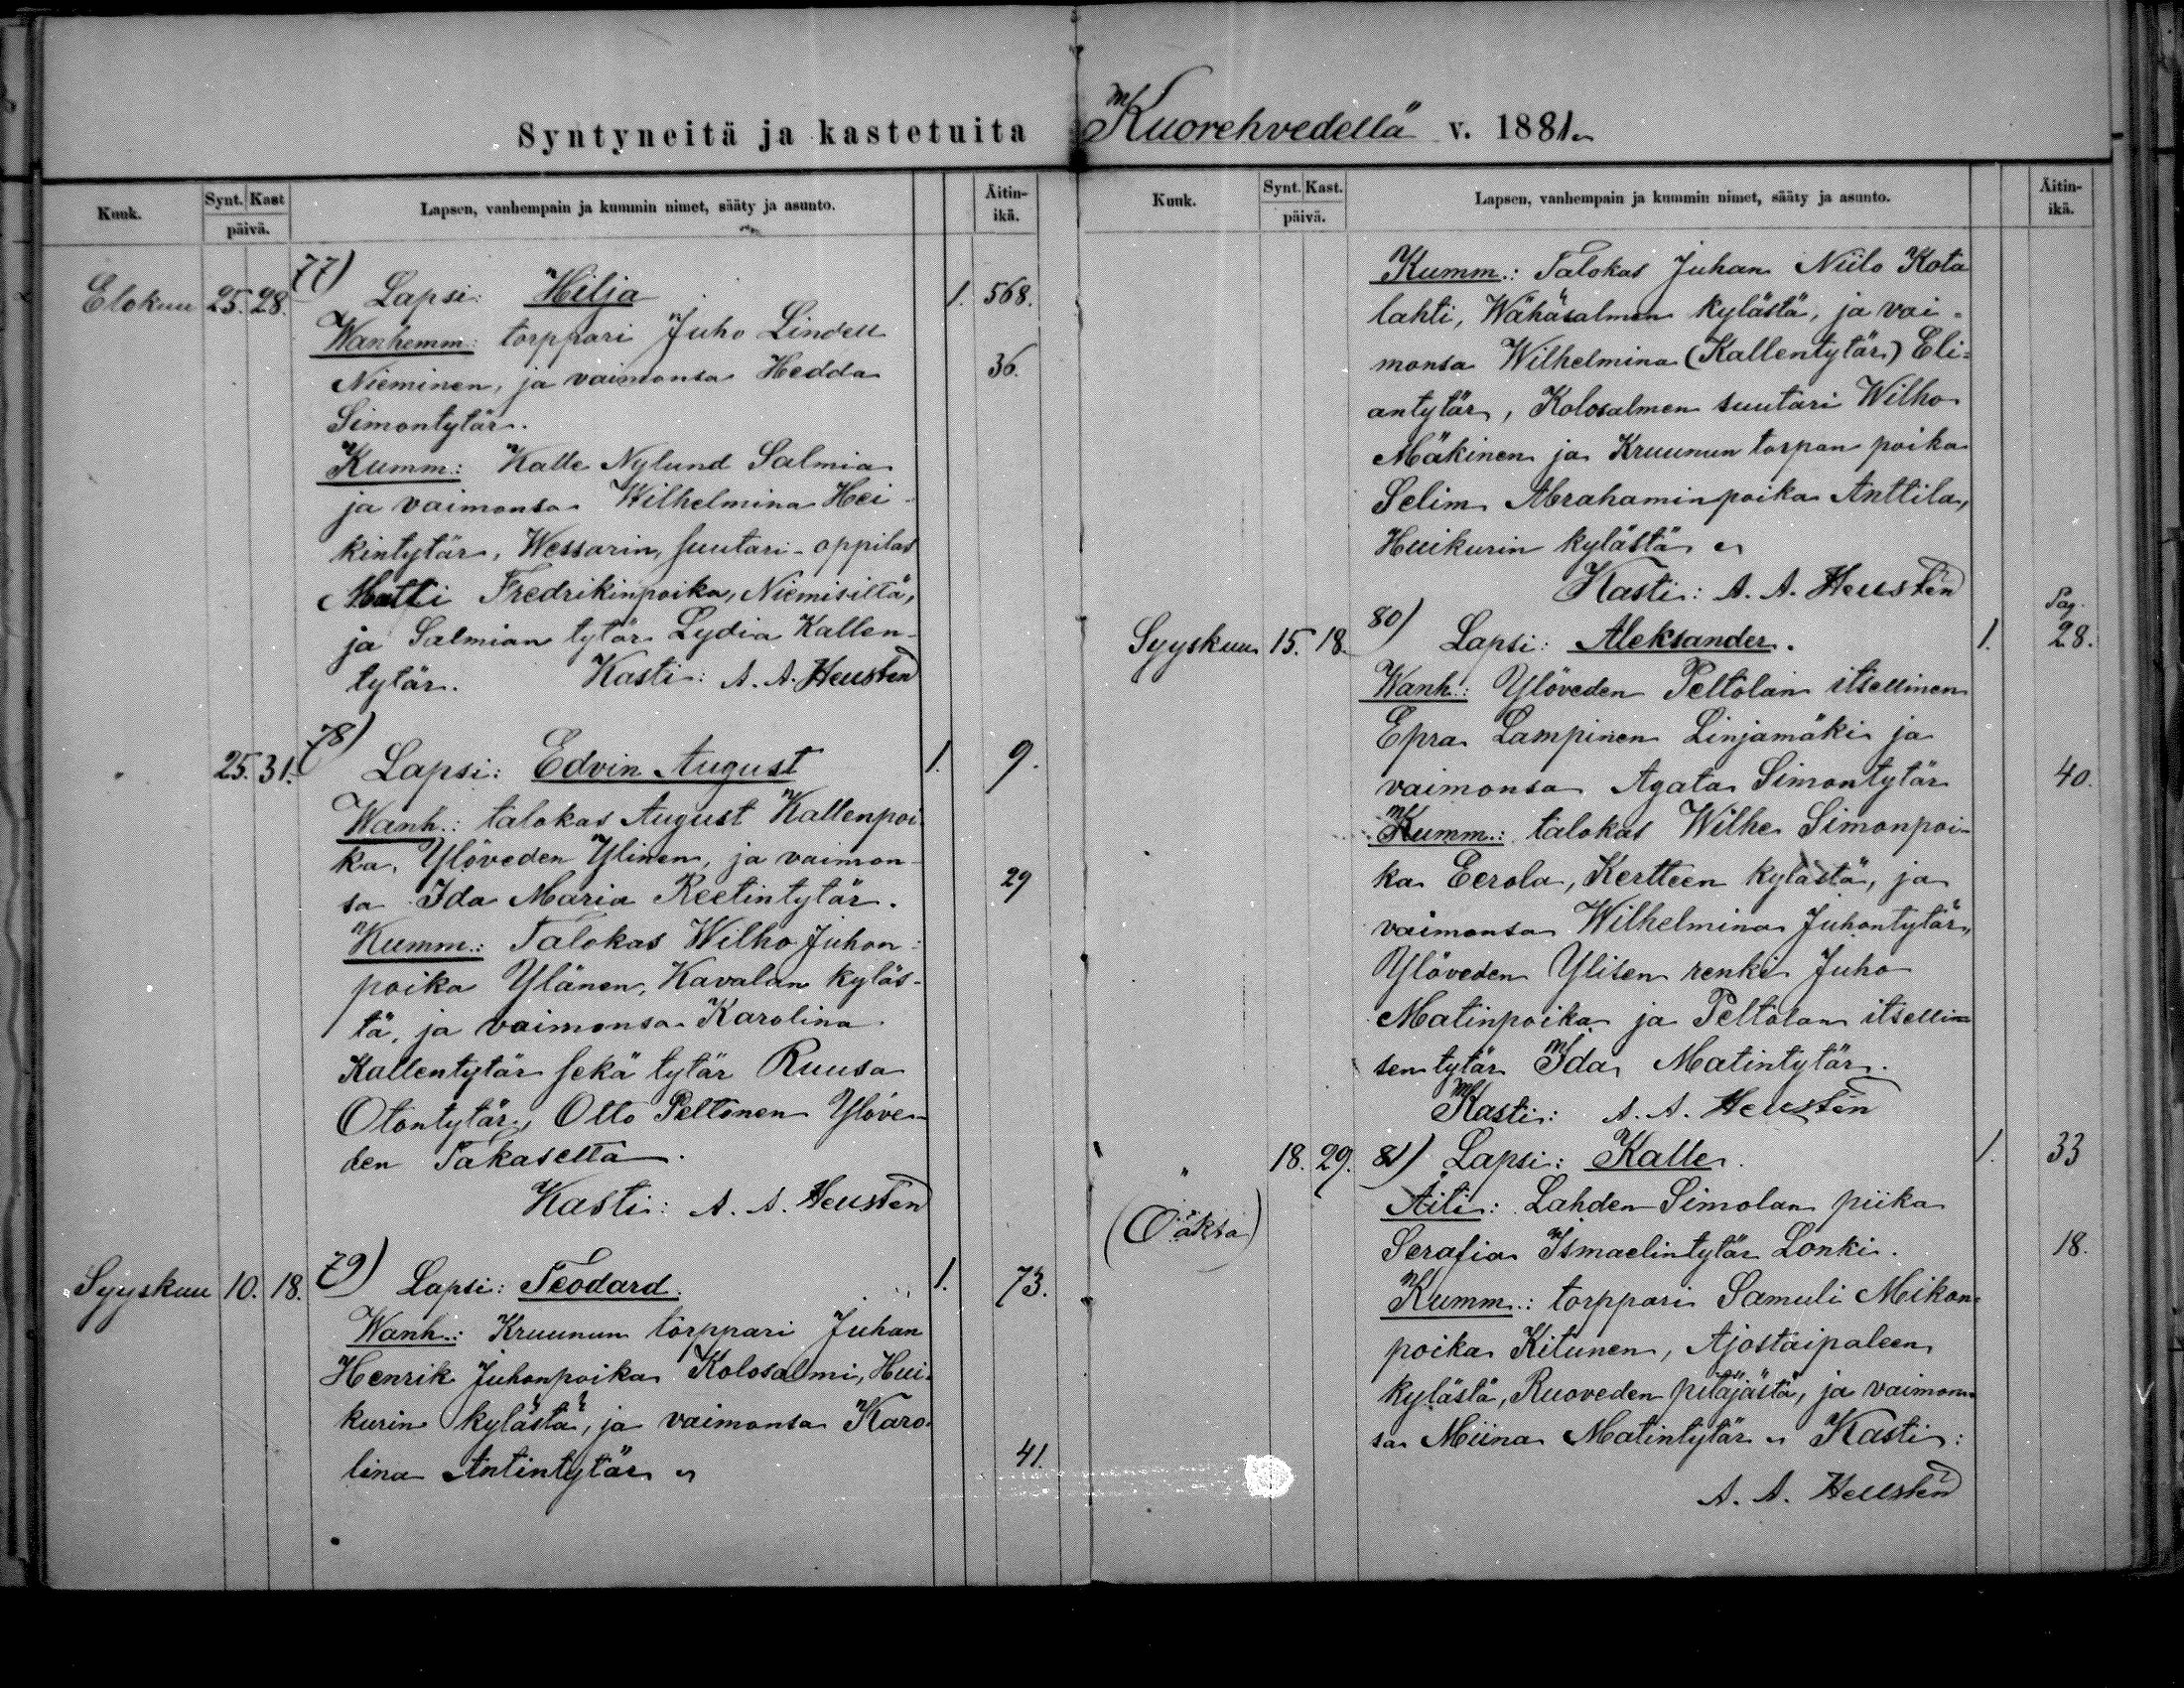 Syntyneitä ja kastetuita Kuorehvedellä v. 1881.
Kuuk. Synt. Kast päivä. Lapsen, vanhempain ja kummin nimet, sääty ja asunto. Äitin-ikä.
77)
Elokuu 25. 28. Lapsi: Hilja 1. 568.
Wanhemm: torppari Juho Lindell
Nieminen, ja vaimonsa Hedda 36.
Simontytär.
Kumm.: Kalle Nylund Salmia
ja vaimonsa Wilhelmina Hei-
kintytär, Wessarin, suutari-oppilas
Matti Fredrikinpoika, Niemisiltä,
ja Salmian tytär Lydia Kallen-
tytär. Kasti: A. A. Heustén
78)
" 25. 31. Lapsi: Edvin August 1. 9.
Wanh.: talokas August Kallenpoi-
ka, Ylöveden Ylinen, ja vaimon-
sa Ida Maria Reetintytär. 29
Kumm.: Talokas Wilho Juhon-
poika Ylänen, Kavalan kyläs-
tä, ja vaimonsa Karolina
Kallentytär sekä tytär Ruusa
Otontytär, Otto Peltonen Ylöve-
den Takaselta.
Kasti: A. A. Heustén
Syyskuu 10. 18. 79) Lapsi: Teodard. 1. 73.
Wanh.: Kruunun torppari Juhan
Henrik Juhonpoika Kolosalmi, Hui-
kurin kylästä, ja vaimonsa Karo-
lina Antintytär 41.
Kuuk. Synt. Kast. päivä. Lapsen, vanhempain ja kummin nimet, sääty ja asunto. Äitin-ikä.
Kumm.: Talokas Juhan Niilo Kota
lahti, Wähäsalmen kylästä, ja vai-
monsa Wilhelmina (Kallentytär) Eli-
antytär, Kolosalmen suutari Wilho
Mäkinen ja Kruunun torpan poika
Selim Abrahaminpoika Anttila,
Huikurin kylästä
Kasti: A. A. Heustén
Pag.
Syyskuu 15. 18. 80) Lapsi: Aleksander. 1. 28.
Wanh.: Ylöveden Peltolan itsellinen
Epra Lampinen Linjamäki ja
vaimonsa Agata Simontytär 40.
Kumm.: talokas Wilhe Simonpoi-
ka Eerola, Kertteen kylästä, ja
vaimonsa Wilhelmina Juhontytär,
Ylöveden Ylisen renki Juho
Matinpoika ja Peltolan itsellin-
sen tytär Ida Matintytär.
Kasti: A. A. Heustén
" 18. 29. 81) Lapsi: Kalle. 1. 33
Äiti: Lahden Simolan piika
Serafia Ismaelintytär Lonki. 18.
Kumm.: torppari Samuli Mikon-
poika Kitunen, Ajostaipaleen
kylästä, Ruoveden pitäjästä, ja vaimon-
sa Miina Matintytär Kasti:
A. A. Heustén